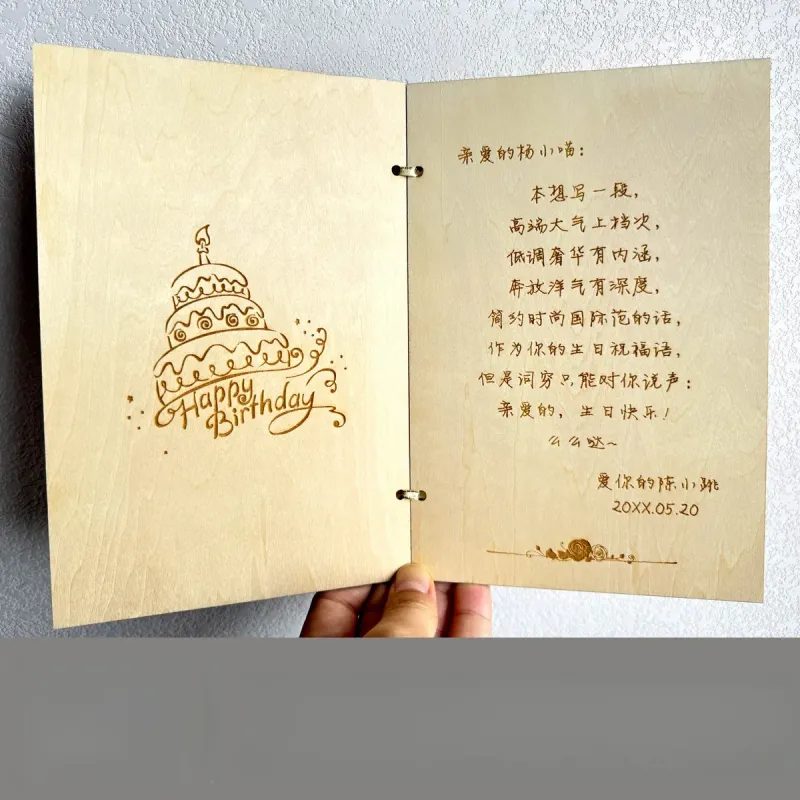 Happy
Birthday
亲爱的杨小喵：
本想写一段，
高端大气上档次，
低调奢华有内涵，
奔放洋气有深度，
简约时尚国际范的话，
作为你的生日祝福语，
但是词穷只能对你说声：
亲爱的，生日快乐！
么么哒~
爱你的陈小跳
20XX.05.20